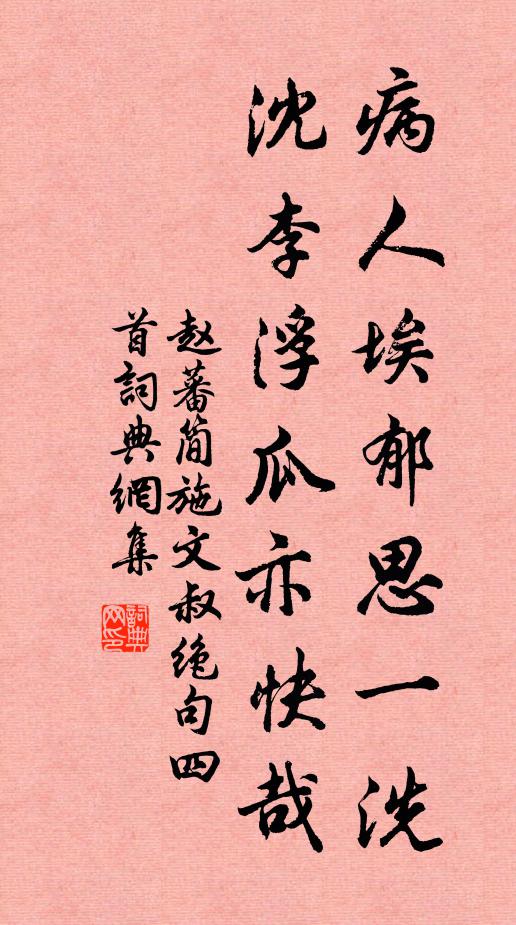 病人埃郁思一洗
沈李浮瓜亦快哉
赵蕃简施文叔绝句四
首詞典網集
詞典网印